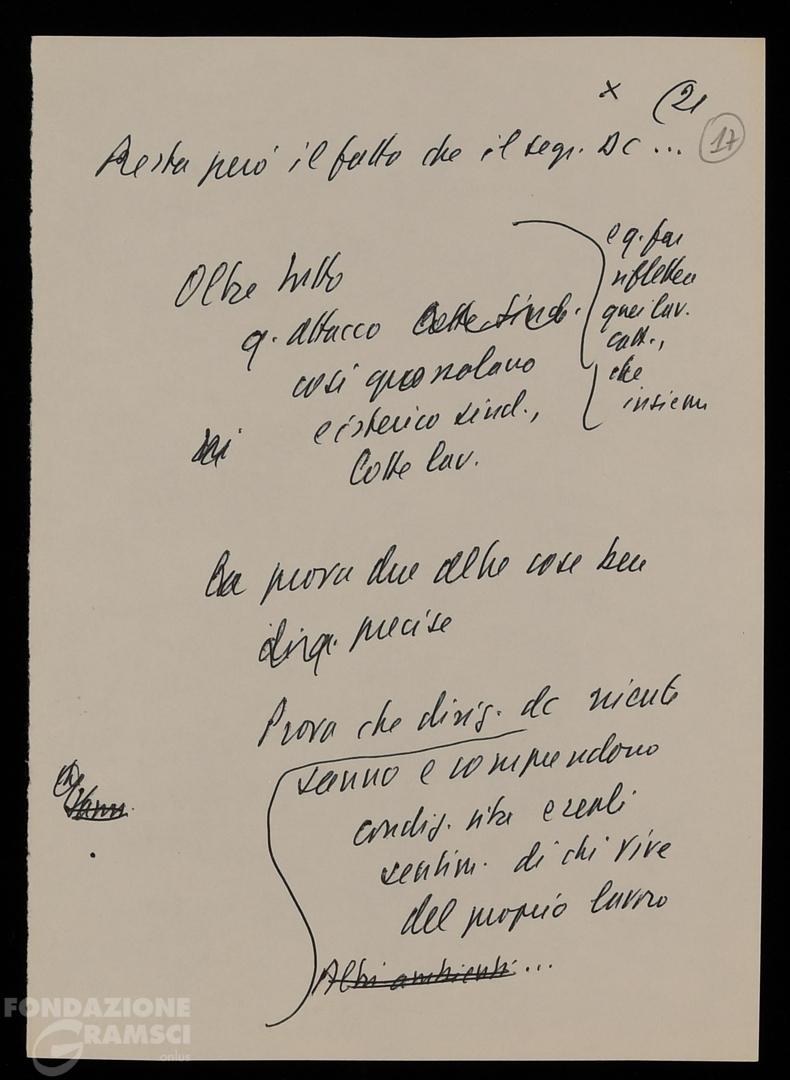 x (21
17
Resta però il fatto che il segr. DC ...
Oltre tutto
q. attacco
così grossolano
e isterico sind.,
lotte lav.
e q. far
riflettere
quei lav.
catt.,
che
insieme
prova due altre cose ben
precise
Prova che dirig. dc niente
sanno e comprendono
condiz. vita e reali
sentim. di chi vive
del proprio lavoro
Altri ambienti ...
che
FONDAZIONE
GRAMSCI
onlus